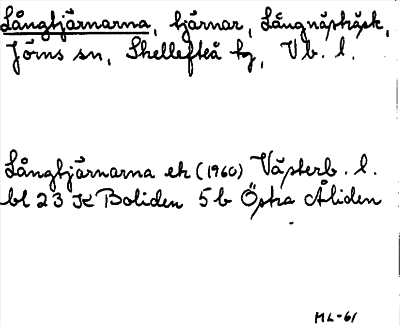 Långtjärnarna, tjärnar, Långnästräsk,
Jörns sn, Skellefteå tg, Vb. l.
Långtjärnarna ek (1960) Västerb. l.
bl 23 K Boliden 5b Östra Åliden
ML-61